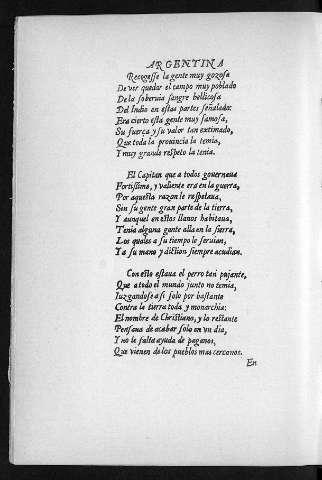 ARGENTINA
Recogesse la gente muy gozosa
De ver quedar el campo muy poblado
De la soberuia sangre bellicosa
Del Indio en estas partes señalado:
Era cierto esta gente muy famosa,
Su fuerça y su valor tan extimado,
Que toda la prouincia la temia,
Y muy grande respeto la tenia.
El Capitan que a todos gouernaua
Fortissimo, y valiente era en la guerra,
Por aquesta razon le respetaua,
Sin su gente gran parte de la tierra,
Y aunque en estos llanos habitaua,
Tenia alguna gente alla en la sierra,
Los quales a su tiempo le seruian,
Y a su mano y diction siempre acudian.
Con esto estaua el perro tan pujante,
Que a todo el mundo junto no temia,
Iuzgandose asi solo por bastante
Contra la tierra toda y monarchia:
El nombre de Christiano, y lo restante
Pensaua de acabar solo en vn dia,
Y no le falta ayuda de paganos,
Que vienen de los pueblos mas cercanos.
En